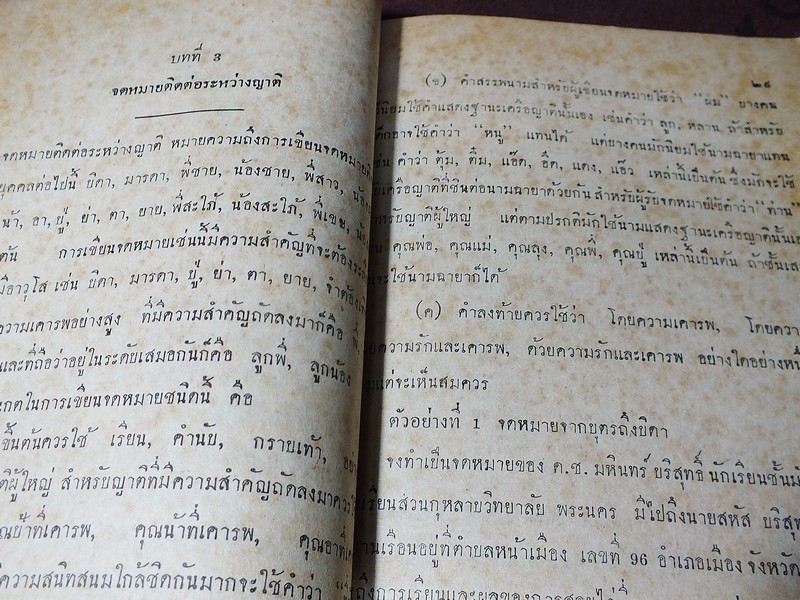 บทที่ 3
จดหมายติดต่อระหว่างญาติ
จดหมายติดต่อระหว่างญาติ หมายความถึงการเขียนจดหมาย
บุคคลต่อไปนี้ บิดา, มารดา, พี่ชาย, น้องชาย, พี่สาว,
น้า, อา, ปู่, ย่า, ตา, ยาย, พี่สะใภ้, น้องสะใภ้, พี่เขย,
การเขียนจดหมายเช่นนี้มีความสำคัญที่จะต้อง
อาวุโส เช่น บิดา, มารดา, ปู่, ย่า, ตา, ยาย, จำต้อง
ความเคารพอย่างสูง ที่มีความสำคัญถัดลงมาก็คือ พี่,
และที่ถือว่าอยู่ในระดับเสมอกันก็คือ ลูกพี่, ลูกน้อง
ในการเขียนจดหมายชนิดนี้ คือ
ขึ้นต้นควรใช้ เรียน, คำนับ, กราบเท้า,
ผู้ใหญ่ สำหรับญาติที่มีความสำคัญถัดลงมาควร
ที่เคารพ, คุณน้าที่เคารพ, คุณอาที่
ความสนิทสนมใกล้ชิดกันมากจะใช้คำว่า
๒๙
(ข) คำสรรพนามสำหรับผู้เขียนจดหมายใช้ว่า "ผม" บางคน
นิยมใช้คำแสดงฐานะเครือญาตินั้นเอง เช่นคำว่า ลูก, หลาน, ถ้าสำหรับ
อาจใช้คำว่า "หนู" แทนได้ แต่บางคนมักนิยมใช้นามฉายาแทน
คำว่า ตุ้ม, ติ๋ม, แอ๊ด, อี๊ด, แดง, แอ๊ว เหล่านี้เป็นต้น ซึ่งมักจะใช้
เครือญาติที่ชินต่อนามฉายาด้วยกัน สำหรับผู้รับจดหมายใช้คำว่า "ท่าน"
ญาติผู้ใหญ่ แต่ตามปรกติมักใช้นามแสดงฐานะเครือญาตินั้น
คุณพ่อ, คุณแม่, คุณลุง, คุณพี่, คุณปู่ เหล่านี้เป็นต้น ถ้าชั้น
จะใช้นามฉายาก็ได้
(ค) คำลงท้ายควรใช้ว่า โดยความเคารพ,
ความรักและเคารพ, ด้วยความรักและเคารพ อย่างใดอย่าง
แต่จะเห็นสมควร
ตัวอย่างที่ 1 จดหมายจากบุตรถึงบิดา
จงทำเป็นจดหมายของ ด.ช. มหินทร์ บริสุทธิ์ นักเรียนชั้น
สวนกุหลาบวิทยาลัย พระนคร มีไปถึงนายสหัส
อยู่ที่ตำบลหน้าเมือง เลขที่ 96 อำเภอเมือง จังหวัด
ถึงการเรียนและผลของการสอบไล่